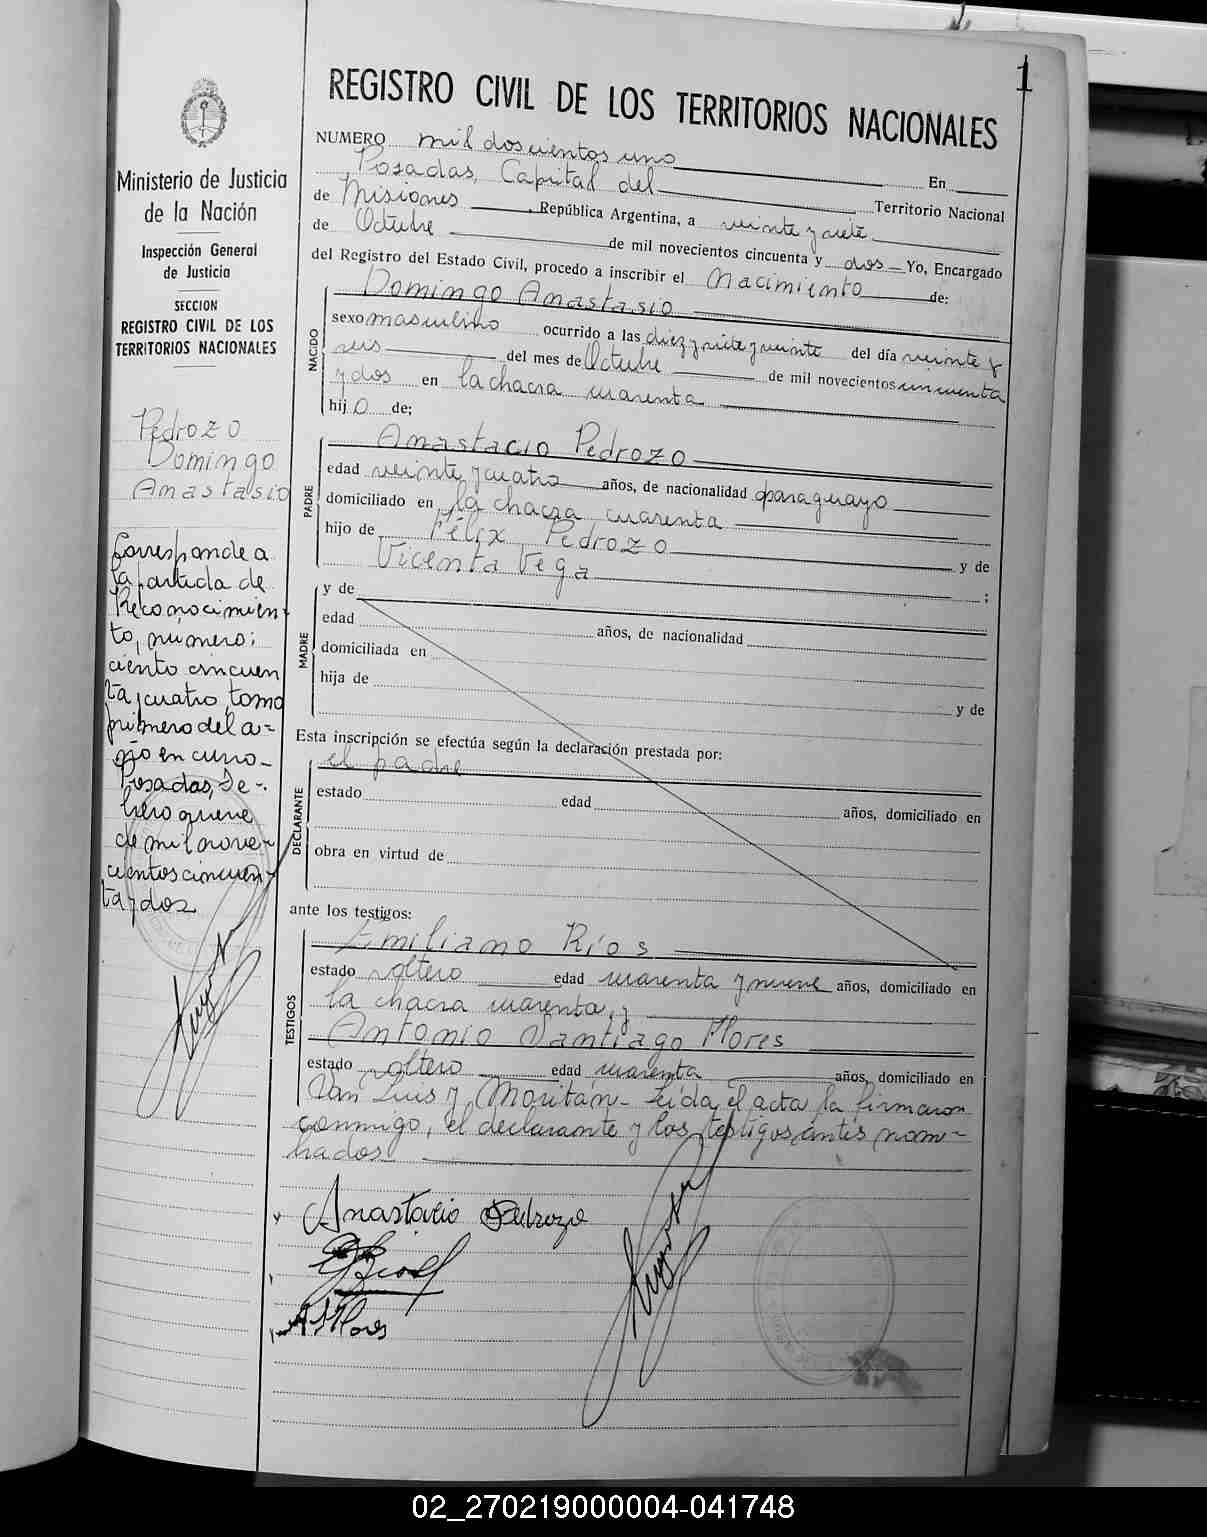 1
REGISTRO CIVIL DE LOS TERRITORIOS NACIONALES
NUMERO mil doscientos uno En
Posadas, Capital del Territorio Nacional
de Misiones, República Argentina, a veinte y siete
de Octubre de mil novecientos cincuenta y dos Yo, Encargado
del Registro del Estado Civil, procedo a inscribir el Nacimiento de:
NACIDO
Domingo Anastasio
sexo masculino ocurrido a las diez y siete y veinte del día veinte y
seis del mes de Octubre de mil novecientos cincuenta
y dos en la chacra cuarenta
hijo de;
PADRE
Anastacio Pedrozo
edad veinte y cuatro años, de nacionalidad paraguayo
domiciliado en la chacra cuarenta
hijo de Félix Pedrozo y de
Vicenta Vega ;
MADRE
y de
edad años, de nacionalidad
domiciliada en
hija de
y de
Esta inscripción se efectúa según la declaración prestada por:
DECLARANTE
el padre
estado edad años, domiciliado en
obra en virtud de
ante los testigos:
TESTIGOS
Emiliano Ríos
estado soltero edad cuarenta y nueve años, domiciliado en
la chacra cuarenta, y
Antonio Santiago Flores
estado soltero edad cuarenta años, domiciliado en
San Luis y Moritán- Leída el acta la firmaron
conmigo, el declarante y los testigos antes nom-
brados.
Anastacio Pedrozo
A S Flores
Ministerio de Justicia
de la Nación
Inspección General
de Justicia
SECCION
REGISTRO CIVIL DE LOS
TERRITORIOS NACIONALES
Pedrozo
Domingo
Anastasio
Corresponde a
la partida de
Reconocimien-
to, número:
ciento cincuen
ta y cuatro, tomo
primero del a=
ño en curso-
Posadas,
nueve
de mil nove-
cientos cincuen-
ta y dos
02_270219000004-041748